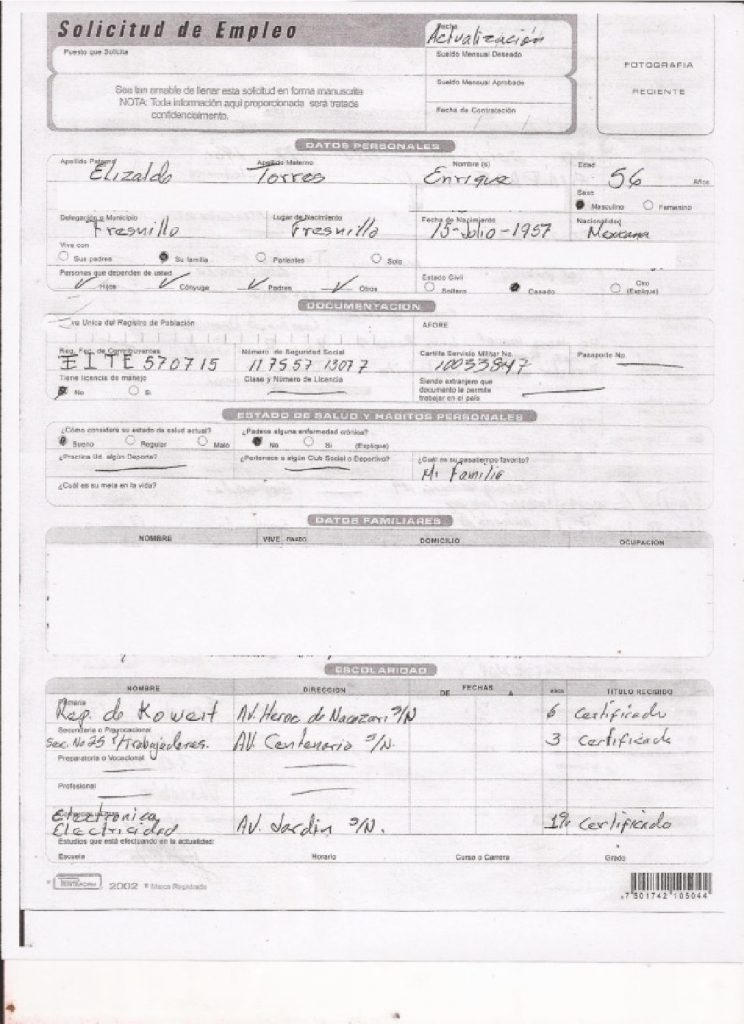 Solicitud de Empleo
Fecha
Actualización
Puesto que Solicita
Sueldo Mensual Deseado
FOTOGRAFIA
RECIENTE
Sea tan amable de llenar esta solicitud en forma manuscrita
NOTA: Toda información aquí proporcionada será tratada
confidencialmente.
Sueldo Mensual Aprobado
Fecha de Contratación
DATOS PERSONALES
Apellido Paterno Apellido Materno Nombre (s) Edad
Elizalde Torres Enrique 56 Años
Sexo
Masculino Femenino
Delegación o Municipio Lugar de Nacimiento Fecha de Nacimiento Nacionalidad
Fresnillo Fresnillo 15-Julio-1957 Mexicana
Vive con
Sus padres Su familia Parientes Solo
Personas que dependen de usted Estado Civil
Hijos Cónyuge Padres Otros Soltero Casado Otro (Explique)
DOCUMENTACION
Unica del Registro de Población AFORE
Reg. Fed. de Contribuyentes Número de Seguridad Social Cartilla Servicio Militar No. Pasaporte No.
EITE 570715 11 75 57 1307 7 10033847
Tiene licencia de manejo Clase y Número de Licencia Siendo extranjero que
documento le permite
trabajar en el país
No Si
ESTADO DE SALUD Y HABITOS PERSONALES
¿Cómo considera su estado de salud actual? ¿Padece alguna enfermedad crónica?
Bueno Regular Malo No Si (Explique)
¿Practica Ud. algún Deporte? ¿Pertenece a algún Club Social o Deportivo? ¿Cuál es su pasatiempo favorito?
Mi Familia
¿Cuál es su meta en la vida?
DATOS FAMILIARES
NOMBRE VIVE DOMICILIO OCUPACION
ESCOLARIDAD
NOMBRE DIRECCION DE FECHAS A AÑOS TITULO RECIBIDO
Primaria
Rep. de Koweit Av. Heroe de Nacozari S/N 6 Certificado
Secundaria o Prevocacional
Sec. No 25 P/Trabajadores. AV. Centenario S/N. 3 Certificada
Preparatoria o Vocacional
Profesional
Electronica
Electricidad AV. Jardin S/N. Certificado
Estudios que está efectuando en la actualidad:
Escuela Horario Curso o Carrera Grado
2002 Marca Registrada
7 501742 105044